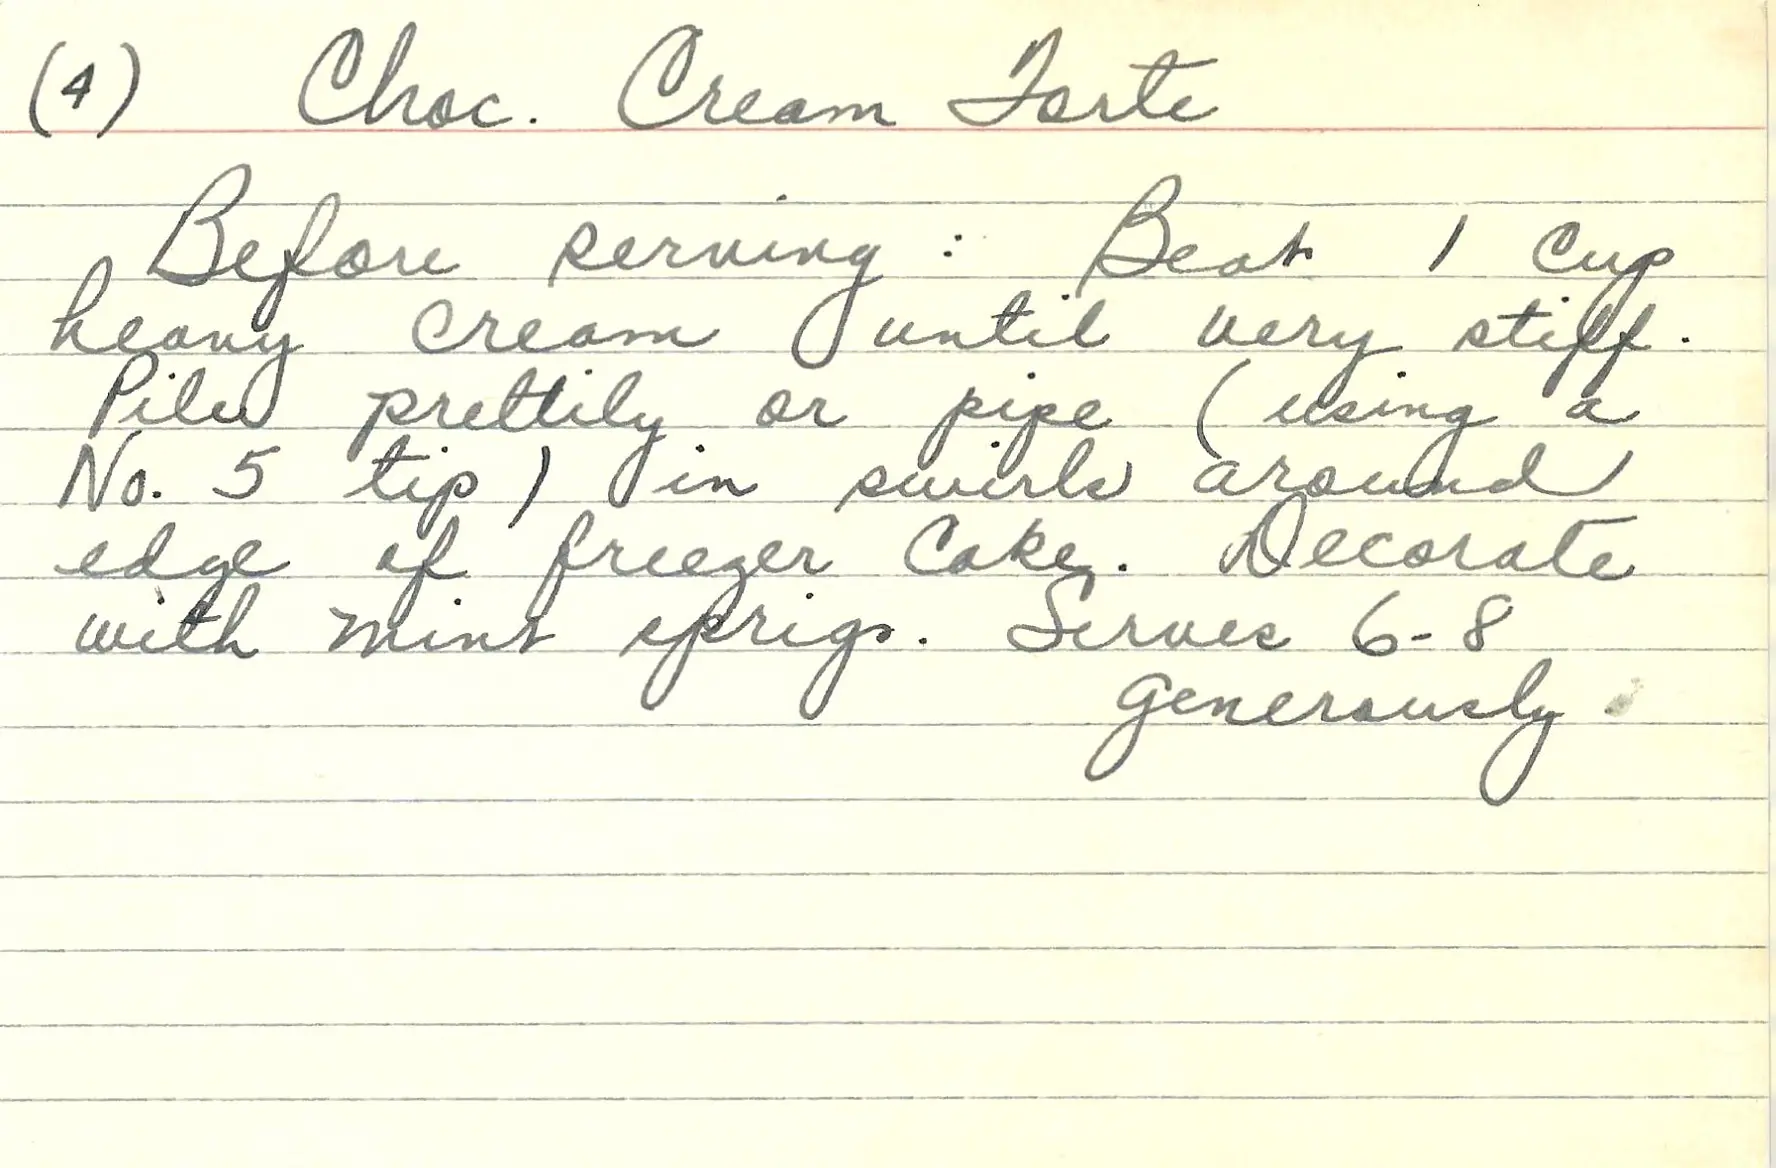 (4) Choc. Cream Torte
Before serving: Beat 1 cup
heavy cream until very stiff.
Pile prettily or pipe (using a
No. 5 tip) in swirls around
edge of freezer cake. Decorate
with mint sprigs. Serves 6-8
generously.